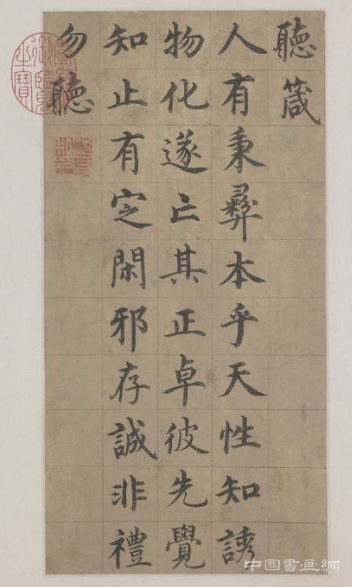 聽箴
人有秉彝本乎天性知誘
物化遂亡其正卓彼先覺
知止有定閑邪存誠非禮
勿聽
中国書画網